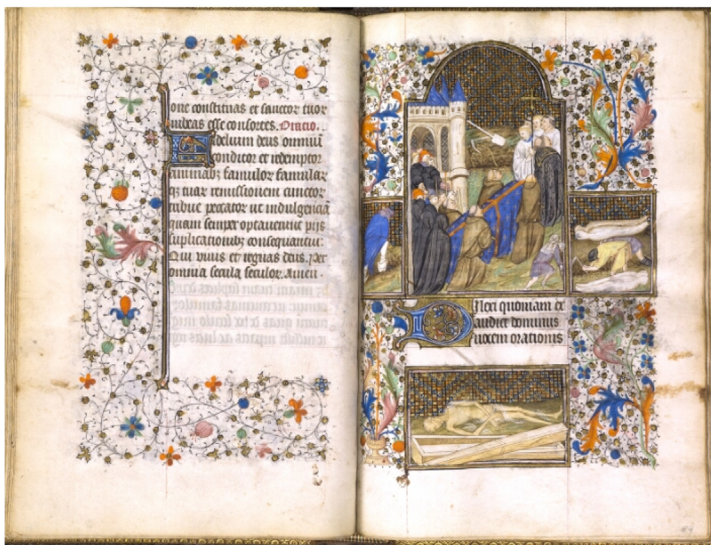 one constituas et sanctor tuor
iubeas esse consortes. Oratio.
Fidelium deus omniu
conditor et redemptor
animabz famulor famular
qz tuar remissionem cunctor
tribue peccator ut indulgencia
quam semper optaverunt pijs
suplicationibz consequantur.
Qui vivis et regnas deus. Per
omnia secula seculor. Amen.
Dilexi quoniam ex
audiet dominus
vocem orationis